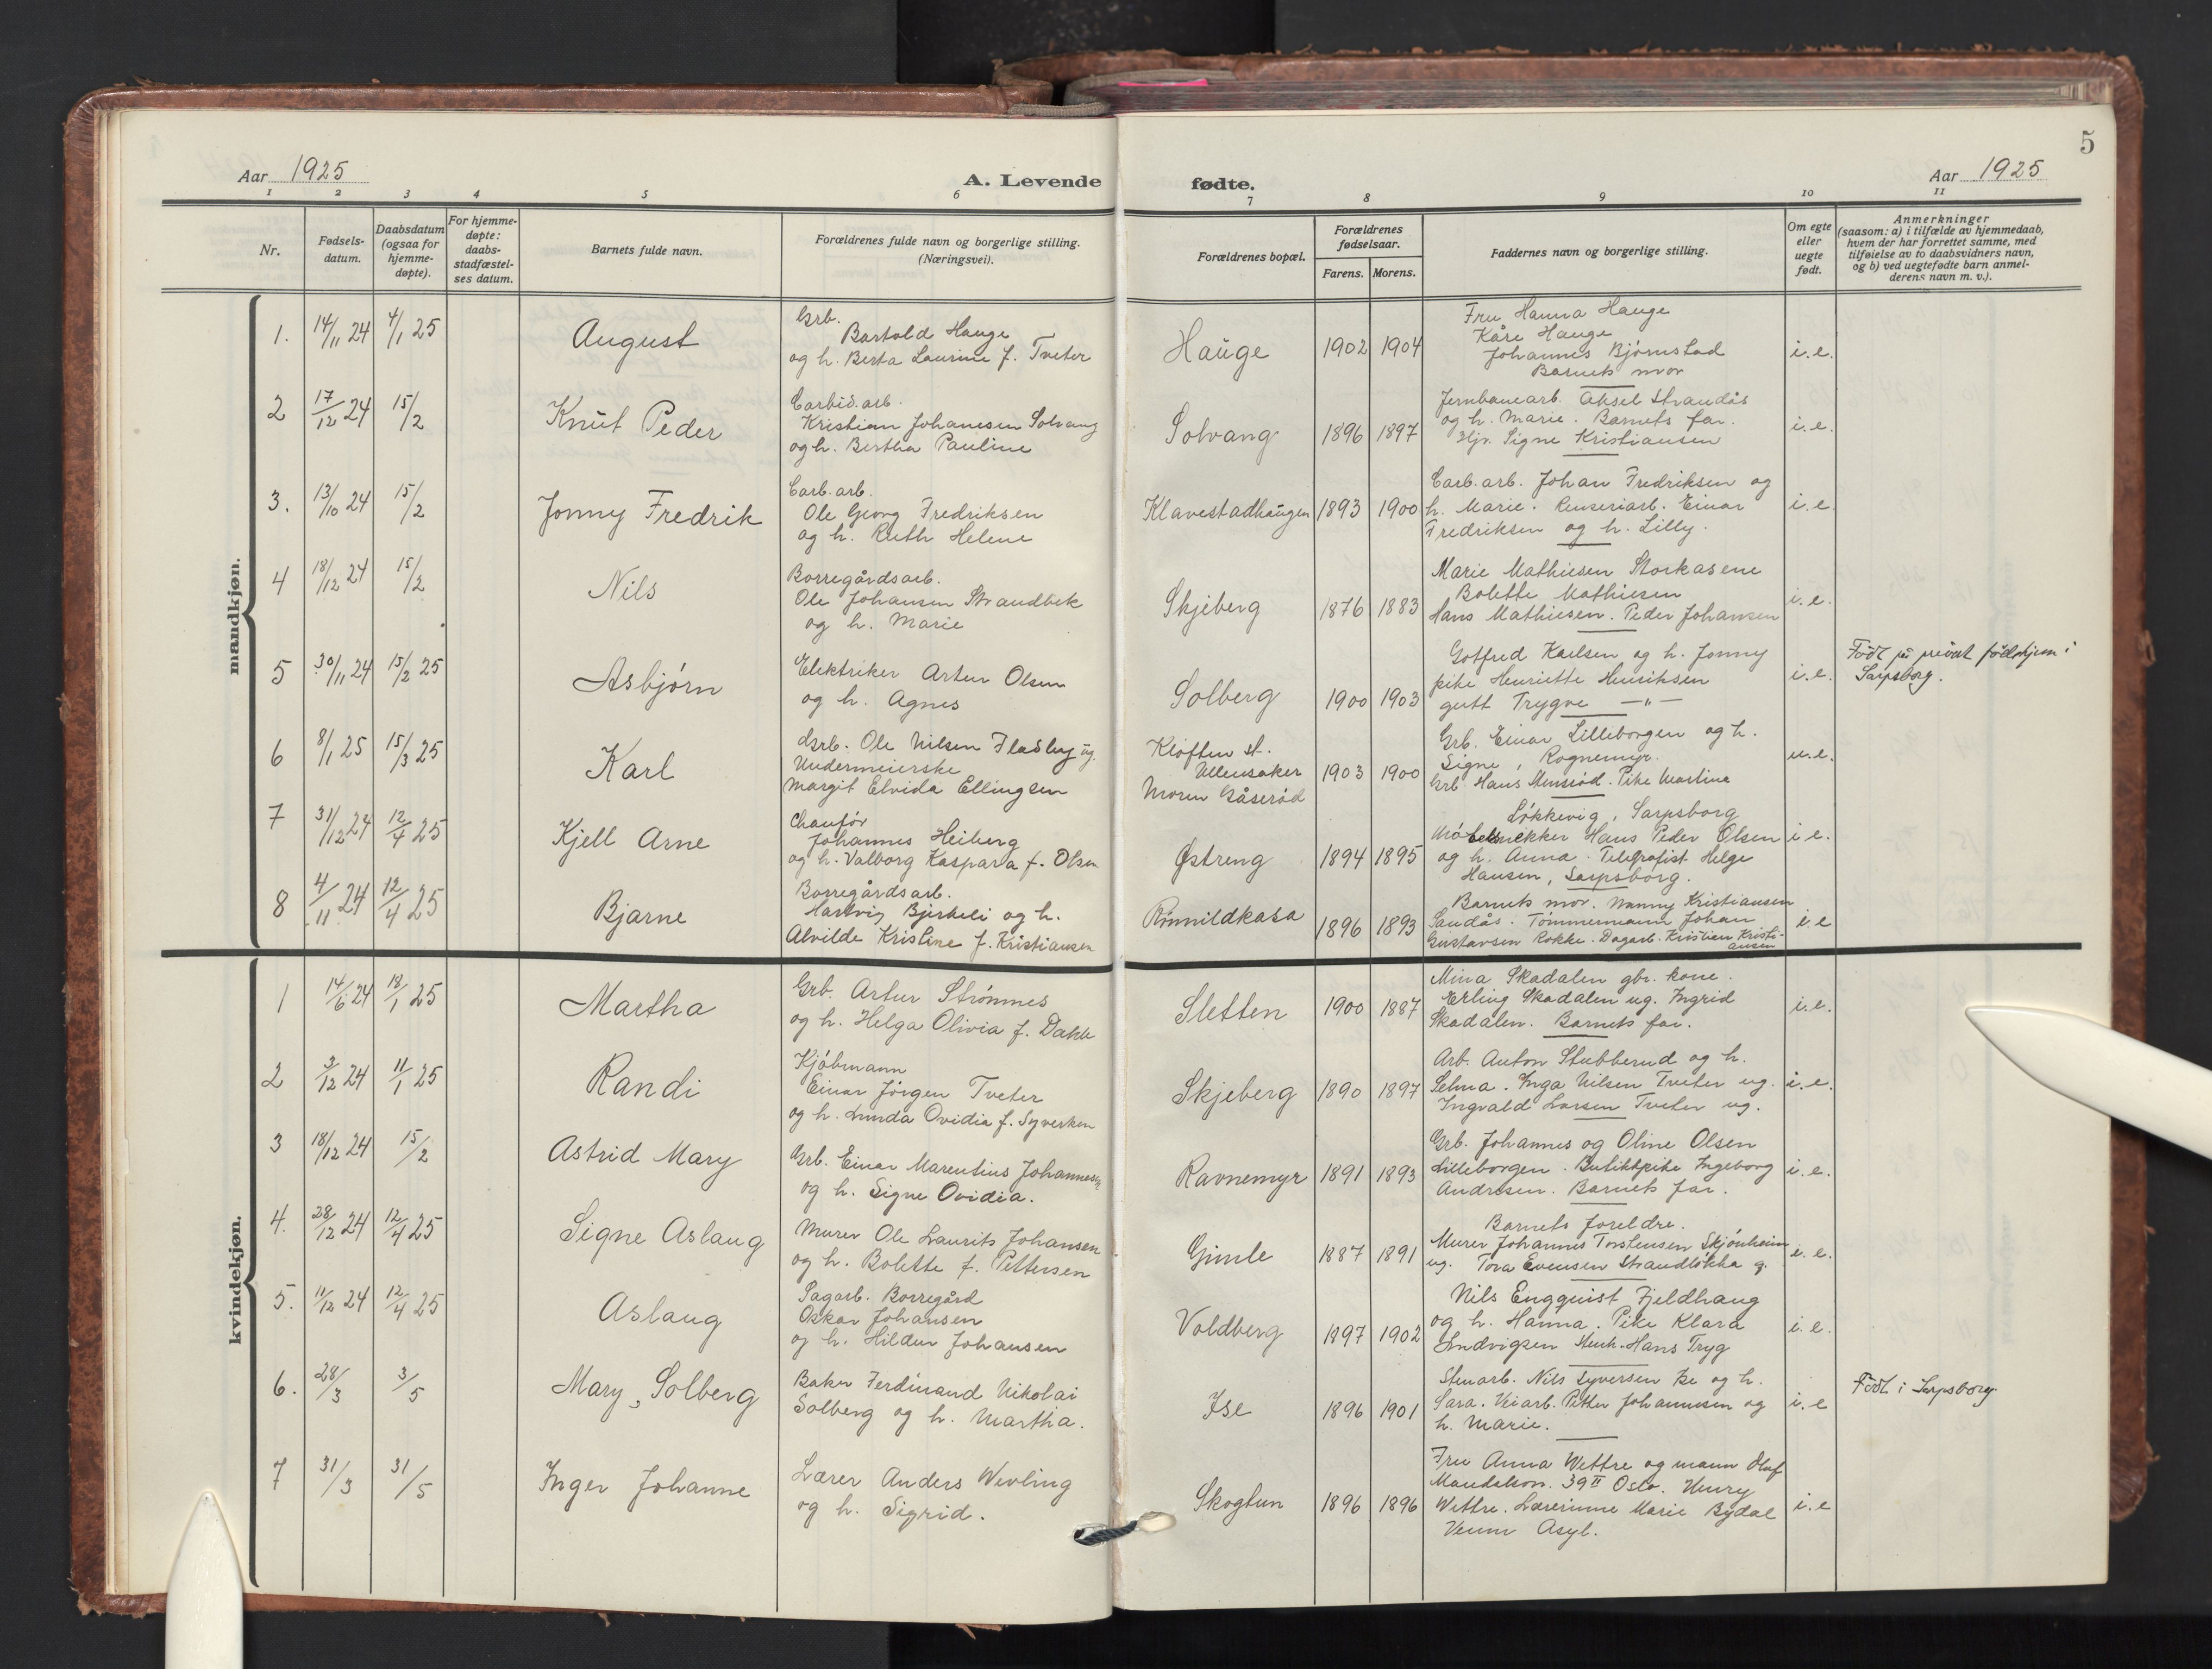 5
Aar 1925
A. Levende fødte.
Aar 1925
1 2 3 4 5 6 7 8 9 10 11
Nr.
Fødsels-
datum.
Daabsdatum
(ogsaa for
hjemme-
døpte).
For hjemme-
døpte:
daabs-
stadfæstel-
ses datum.
Barnets fulde navn.
Forældrenes fulde navn og borgerlige stilling.
(Næringsvei).
Forældrenes bopæl.
Forældrenes
fødselsaar.
Farens. Morens.
Faddernes navn og borgerlige stilling.
Om egte
eller
uegte
født.
Anmerkninger
(saasom: a) i tilfælde av hjemmedaab,
hvem der har forrettet samme, med
tilføielse av to daabsvidners navn,
og b) ved uegtefødte barn anmel-
derens navn m. v.).
mandkjøn.
1. 14/11 24 4/1 25 August
Grb.
Bartold Hauge
og h. Berta Laurine f. Tveter
Hauge 1902 1904
Fru Hanna Hauge
Kåre Hauge
Johannes Bjørnstad
Barnets mor
i.e.
2 17/12 24 15/2 Knut Peder
Carbid.arb.
Kristian Johanesen Solvang
og h. Bertha Pauline
Solvang 1896 1897
Jernbanearb. Aksel Strandås
og h. Marie. Barnets far.
Hjv. Signe Kristiansen
i.e.
3. 13/10 24 15/2 Jonny Fredrik
Carb.arb.
Ole Georg Fredriksen
og h. Ruth Helene
Klavestadhaugen 1893 1900
Carb.arb. Johan Fredriksen og
h. Marie. Renseriarb. Einar
Fredriksen og h. Lilly.
i.e.
4 18/12 24 15/2 Nils
Borregårdsarb.
Ole Johansen Strandbek
og h. Marie
Skjeberg 1876 1883
Marie Mathiesen Storkasene
Bolette Mathiesen
Hans Mathiesen. Peder Johansen
i.e.
5 30/11 24 15/2 25 Asbjørn
Elektriker Artur Olsen
og h. Agnes
Solberg 1900 1903
Gotfred Karlsen og h. Jonny
pike Henriette Henriksen
gutt Trygve —"—
i.e.
Född på privat fødehjem i
Sarpsborg.
6 8/1 25 15/3 25 Karl
Grb. Ole Nilsen Fladby ug.
Undermeierske
Margit Elvida Ellingsen
Kløften st.
Ullensaker
Moren Gåserød
1903 1900
Grb. Einar Lilleborgen og h.
Signe, Rognemyr.
Grb Hans Stensrød. Pike Martine
u.e.
7 31/12 24 12/4 25 Kjell Arne
Chaufør
Johannes Heiberg
og h. Valborg Kaspara f. Olsen
Østreng 1894 1895
Løkkevig, Sarpsborg
Møbelsnekker Hans Peder Olsen
og h. Anna. Telegrafist Helge
Hansen, Sarpsborg.
i.e.
8 4/11 24 12/4 25 Bjarne
Borregårdsarb.
Hartvig Bjerkeli og h.
Alvilde Kristine f. Kristiansen
1896 1893
Barnets mor. Nanny Kristiansen
Sandås. Tømmermann Johan
Gustavsen Rokke. Dagarb. Kristian Kristi-
ansen
i.e
kvindekjøn.
1 14/6 24 18/1 25 Martha
Grb. Artur Strømnes
og h. Helga Olivia f. Dahle
Sletten 1900 1887
Mina Skadalen gbr. kone.
Erling Skadalen ug. Ingrid
Skadalen. Barnets far.
i.e.
2 3/12 24 11/1 25 Randi
Kjøbmann
Einar Jørgen Tveter
og h. Lunda Ovidia f. Syversen
Skjeberg 1890 1897
Arb. Anton Stubberud og h.
Selma. Inga Nilsen Tveter ug.
Ingvald Larsen Tveter ug.
i.e.
3 18/12 24 15/2 Astrid Mary
Grb. Einar Marentius Johannesen
og h. Signe Ovidia.
Ravnemyr 1891 1893
Grb. Johannes og Oline Olsen
Lilleborgen. Butikkpike Ingeborg
Andresen. Barnets far.
i.e.
4. 28/12 24 12/4 25 Signe Aslaug
Murer Ole Laurits Johansen
og h. Bolette f. Pettersen
Gimle 1887 1891
Barnets foreldre.
Murer Johannes Torstensen Skjønheim
ug. Tora Evensen Strandløkka g.
i.e.
5. 11/12 24 12/4 25 Aslaug
Sagarb. Borregård
Oskar Johansen
og h. Hildur Johansen
Voldberg 1897 1902
Nils Engquist Fjeldhaug
og h. Hanna. Pike Klara
Ludvigsen Hans Tryg
i.e.
6. 28/3 3/5 Mary, Solberg
Baker Ferdinand Nikolai
Solberg og h. Martha.
Ise 1896 1901
Stenarb. Nils Syversen Ise og h.
Sara. Veiarb. Petter Johannesen og
h. Marie.
i.e
Född i Sarpsborg.
7 31/3 31/5 Inger Johanne
Lærer Anders Wevling
og h. Sigrid.
Skogtun 1896 1896
Fru Anna Wettre og mann Oluf
39 II Oslo. Henry
Wettre. Lærerinne Marie Bydal
Venm Asyl.
i.e